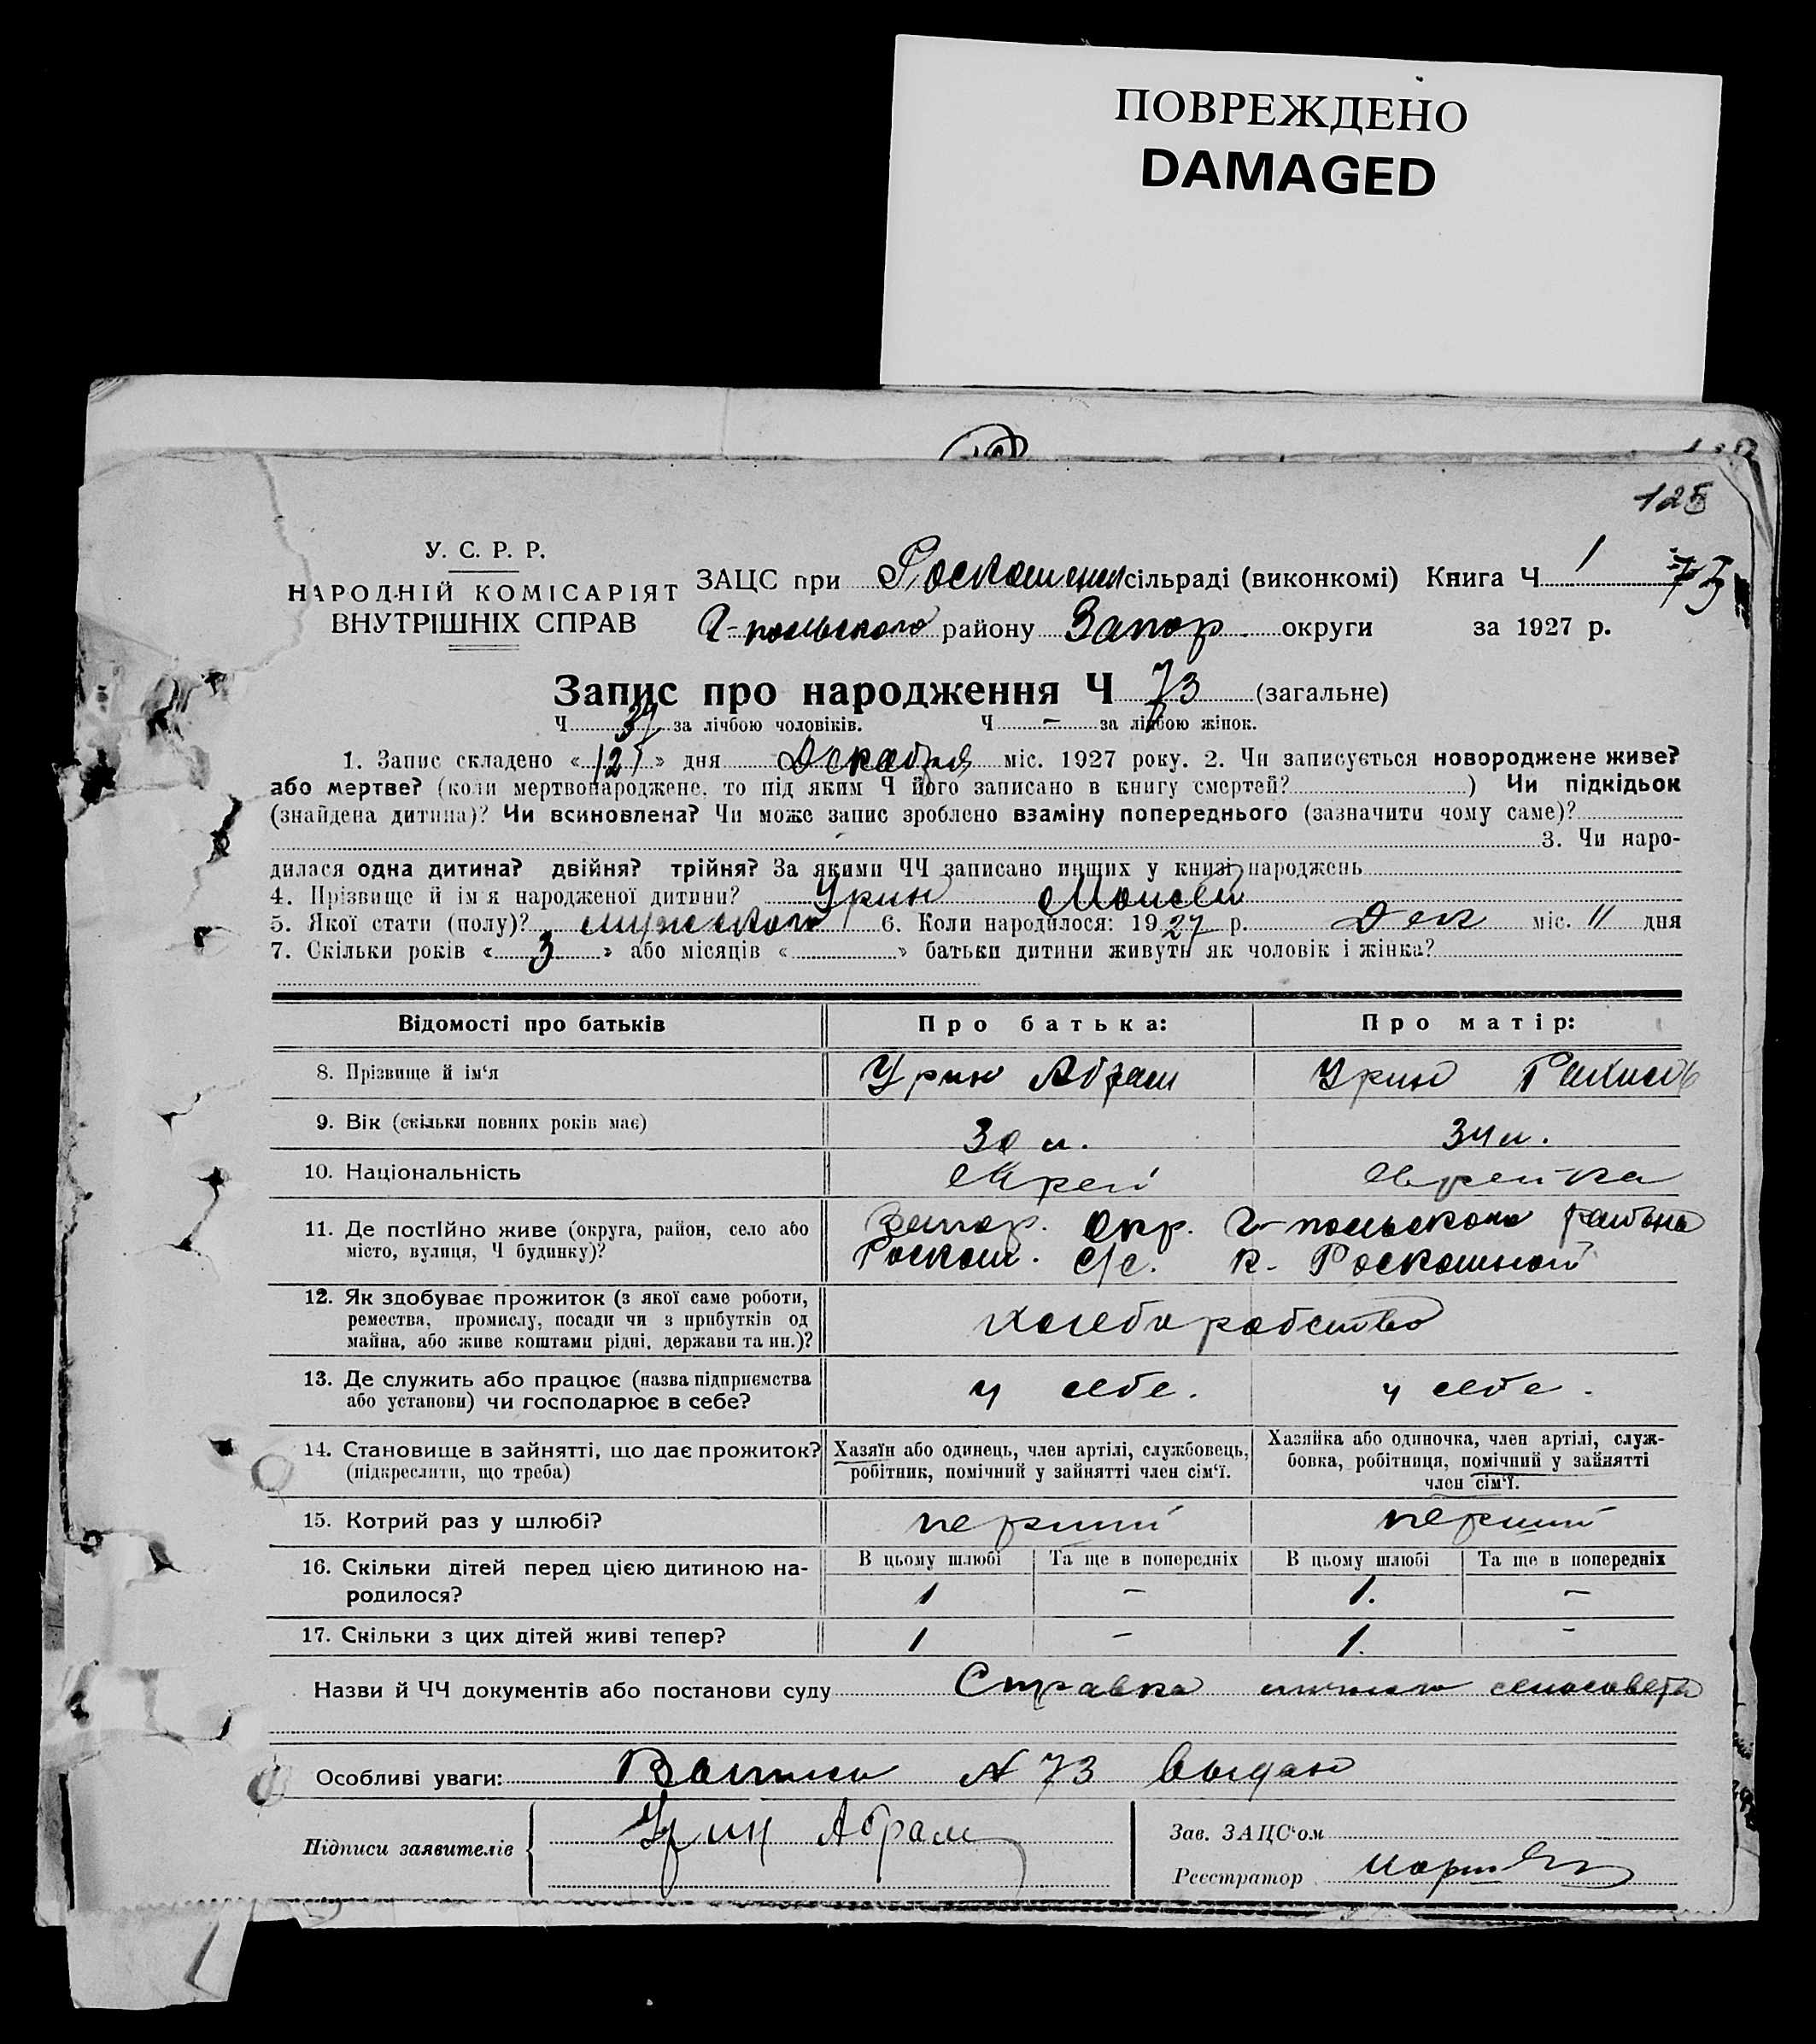 ПОВРЕЖДЕНО
DAMAGED
125
У. С. Р. Р.
НАРОДНІЙ КОМІСАРІЯТ
ВНУТРІШНІХ СПРАВ
ЗАЦС при Роскошенск сільраді (виконкомі) Книга Ч 1 73
Г-польского району Запор. округи за 1927 р.
Запис про народження Ч 73 (загальне)
Ч 39 за лічбою чоловіків. Ч — за лічбою жінок.
1. Запис складено «12» дня Декабря міс. 1927 року. 2. Чи записується новороджене живе?
або мертве? (коли мертвонароджене, то під яким Ч його записано в книгу смертей? ) Чи підкідьок
(знайдена дитина)? Чи всиновлена? Чи може запис зроблено взаміну попереднього (зазначити чому саме)?
3. Чи наро-
дилася одна дитина? двійня? трійня? За якими ЧЧ записано инших у книзі народжень
4. Прізвище й ім'я народженої дитини? Урин Моисей
5. Якої стати (полу)? мужского 6. Коли народилося: 1927 р. Дек міс. 11 дня
7. Скільки років «3» або місяців « » батьки дитини живуть як чоловік і жінка?
Відомості про батьків Про батька: Про матір:
8. Прізвище й ім'я Урин Абрам Урин Рахиль
9. Вік (скільки повних років має) 30 л. 34 л.
10. Національність Еврей еврейка
11. Де постійно живе (округа, район, село або Запор. окр. Г-польского района
місто, вулиця, Ч будинку)? Роскош. с/с. к. Роскошной
12. Як здобуває прожиток (з якої саме роботи,
ремества, промислу, посади чи з прибутків од хлеборобство
майна, або живе коштами рідні, держави та ин.)?
13. Де служить або працює (назва підприємства у себе. у себе.
або установи) чи господарює в себе?
14. Становище в зайнятті, що дає прожиток? Хазяїн або одинець, член артілі, службовець, Хазяйка або одиночка, член артілі, служ-
(підкреслити, що треба) робітник, помічний у зайнятті член сім'ї. бовка, робітниця, помічний у зайнятті
член сім'ї.
15. Котрий раз у шлюбі? перший перший
16. Скільки дітей перед цією дитиною на- В цьому шлюбі Та ще в попередніх В цьому шлюбі Та ще в попередніх
родилося? 1 – 1. –
17. Скільки з цих дітей живі тепер? 1 – 1. –
Назви й ЧЧ документів або постанови суду Справка сельсовета
Особливі уваги: N 73 выдан
Підписи заявителів Урин Абрам Зав. ЗАЦС'ом
Реєстратор